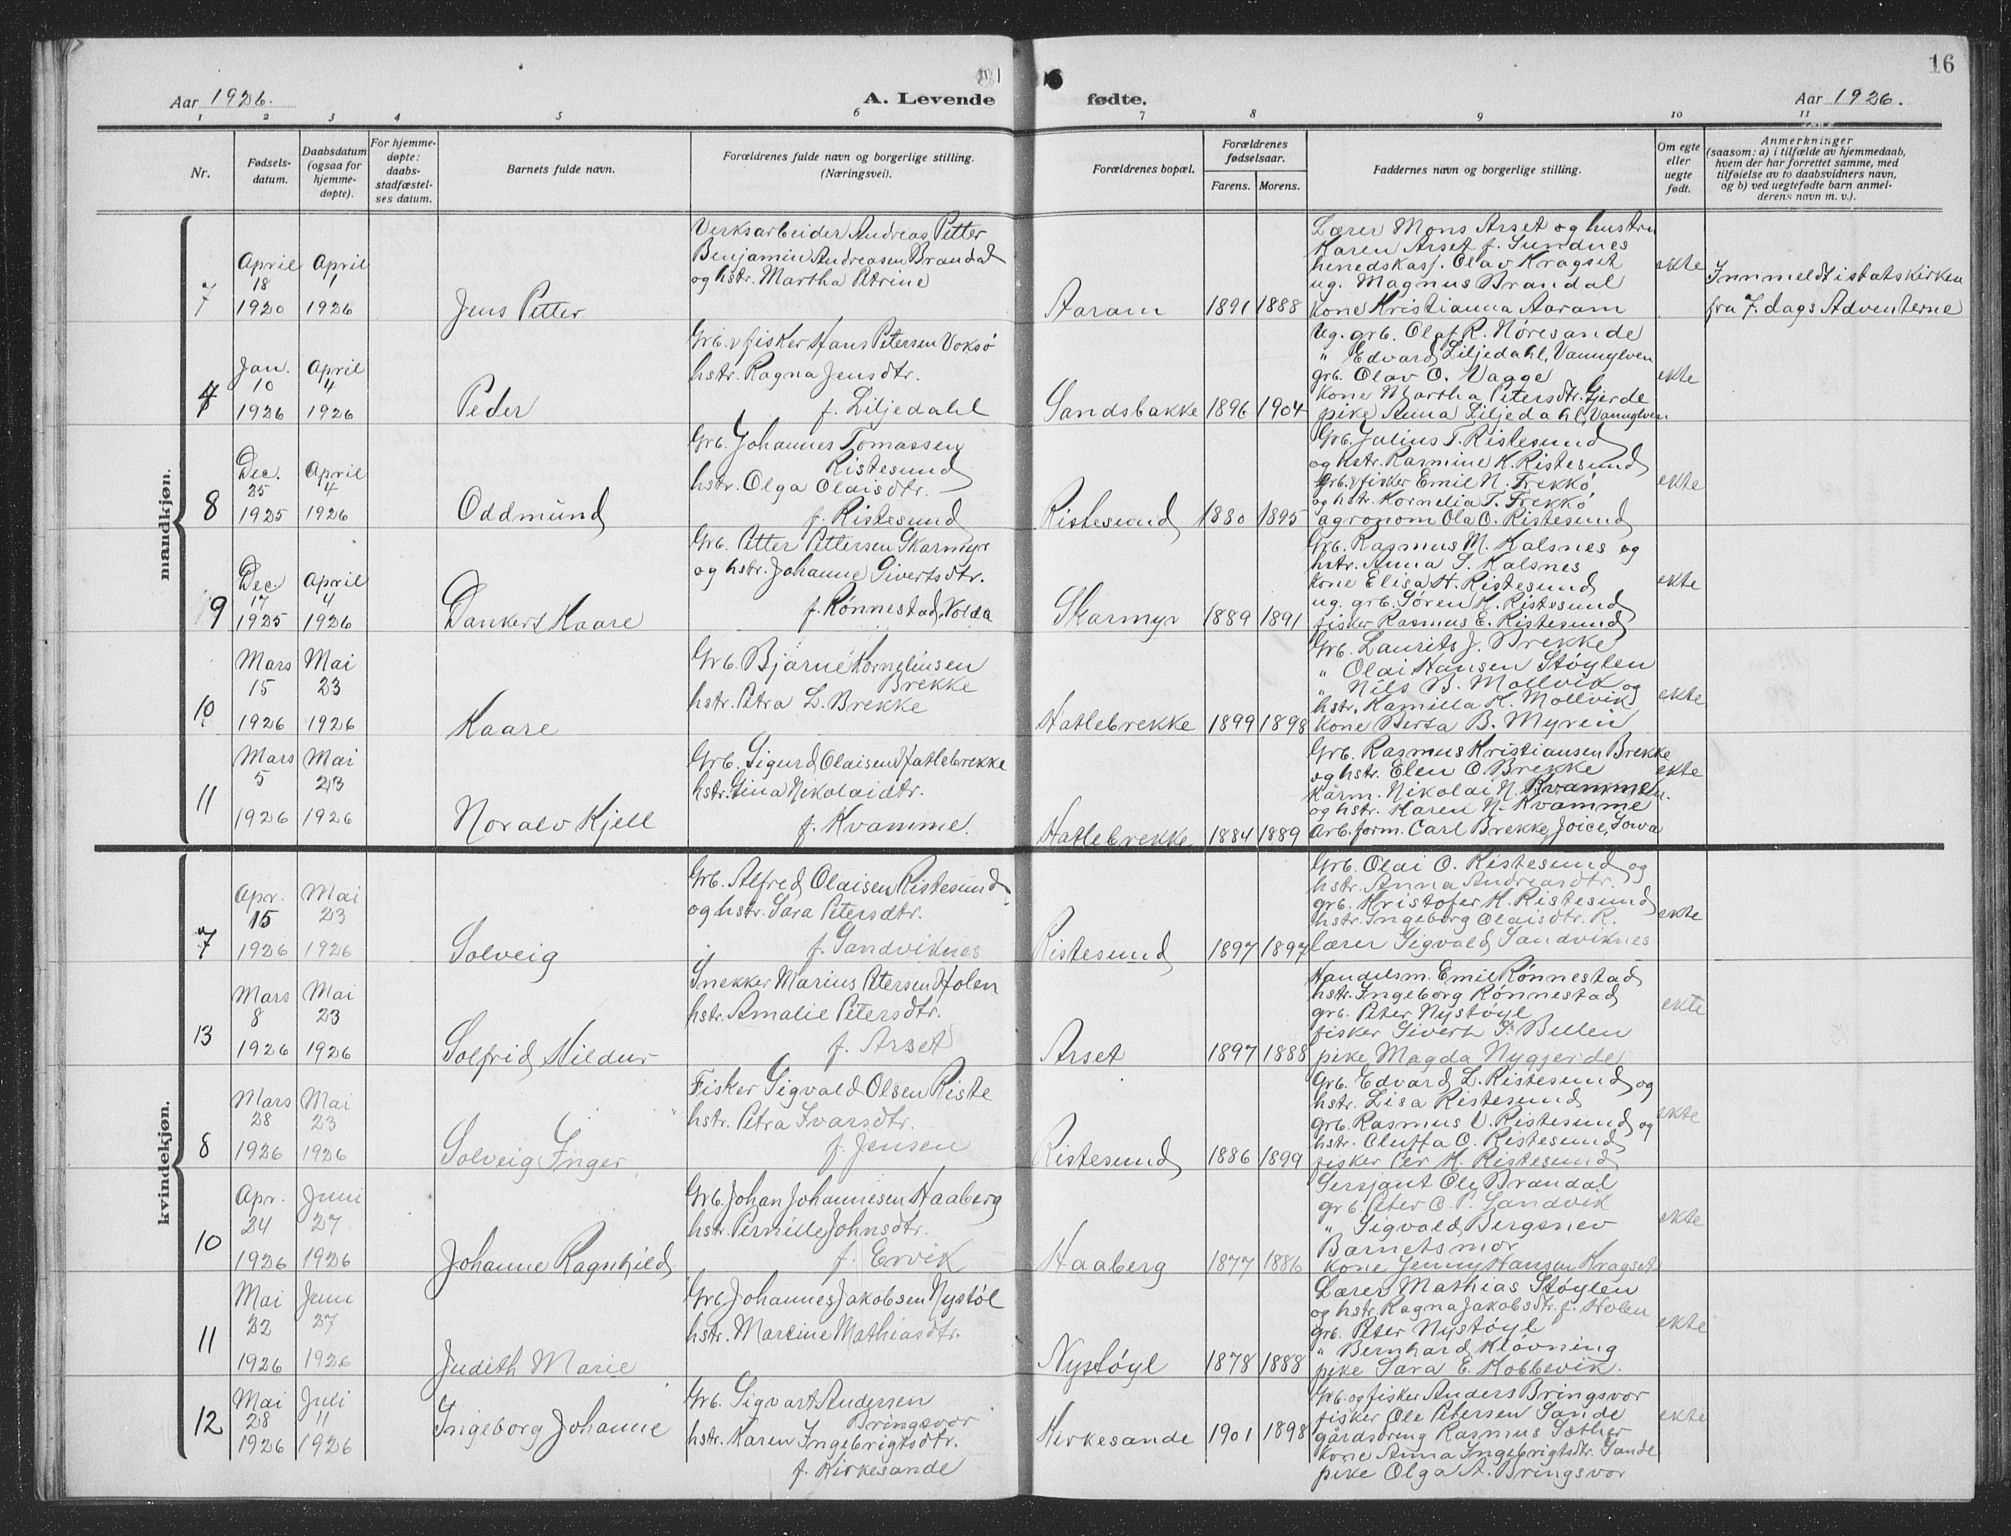 16
Aar 1926.
A. Levende
fødte.
Aar 1926.
1 2 3 4 5 6 7 8 9 10 11
Nr.
Fødsels-
datum.
Daabsdatum
(ogsaa for
hjemme-
døpte).
For hjemme-
døpte:
daabs-
stadfæstel-
ses datum.
Barnets fulde navn.
Forældrenes fulde navn og borgerlige stilling.
(Næringsvei).
Forældrenes bopæl.
Forældrenes
fødselsaar.
Farens. Morens.
Faddernes navn og borgerlige stilling.
Om egte
eller
uegte
født.
Anmerkninger
(saasom: a) i tilfælde av hjemmedaab,
hvem der har forrettet samme, med
tilføielse av to daabsvidners navn,
og b) ved uegtefødte barn anmel-
derens navn m. v.).
mandkjøn.
7
April
18
1920
April
1
1926
Jens Petter
Verksarbeider Andreas Petter
Benjamin Andreasen Brandal
og hstr. Martha Petrine
Aaram
1891 1888
Lærer Mons Arset og hustru
Karen Arset f. Sundnes
herredskass. Olav Kragset
ug. Magnus Brandal
kone Kristianna Aaram
ekte
Innmeldt i statskirken
fra 7. dags Adventerne
4
Jan.
10
1926
April
4
1926
Peder
Grb. & fisker Hans Petersen Voksø
hstr. Ragna Jensdtr.
f. Liljedahl
Sandsbakke
1896 1904
Ug. grb. Olaf R. Nøresande
" Edvard Liljedahl, Vannylven
grb. Olav O. Vagge
kone Martha Petersdtr. Gjerde
pike Anna Liljedahl, Vannylven
ekte
8
Dec.
25
1925
April
4
1926
Oddmund
Grb. Johannes Tomassen
Ristesund
hstr. Olga Olaisdtr.
f. Ristesund
Ristesund
1880 1895
Grb. Julius T. Ristesund
og hstr. Rasmine K. Ristesund
Grb. & fisker Emil N. Frekkø
og hstr. Kornelia T. Frekkø
agronom Ola O. Ristesund
ekte
9
Dec.
17
1925
April
4
1926
Dankert Kaare
Grb. Petter Pettersen Skarmyr
og hstr. Johanne Sivertsdtr.
f. Rønnestad, Volda
Skarmyr
1889 1891
Grb. Rasmus M. Kalsnes og
hstr. Anna S. Kalsnes
kone Elisa H. Ristesund
ug. grb. Søren K. Ristesund
fisker Rasmus E. Ristesund
ekte
10
Mars
15
1926
Mai
23
1926
Kaare
Grb. Bjarne Korneliusen
Brekke
hstr. Petra L. Brekke
Hatlebrekke
1899 1898
Grb. Laurits J. Brekke
" Olai Hansen Støylen
" Nils B. Mollvik og
hstr. Kamilla K. Mollvik
kone Berta B. Myren
ekte
11
Mars
5
1926
Mai
23
1926
Noralv Kjell
Grb. Sigurd Olaisen Hatlebrekke
hstr. Gina Nikolaidtr.
f. Kvamme.
Hatlebrekke
1884 1889
Grb. Rasmus Kristiansen Brekke
og hstr. Elen O. Brekke
Kårm. Nikolai N. Kvamme
og hstr. Karen N. Kvamme
Arb.form. Carl Brekke, Joice, Iowa
ekte
kvindekjøn.
7
Apr.
15
1926
Mai
23
1926
Solveig
Grb. Alfred Olaisen Ristesund
og hstr. Sara Petersdtr.
f. Sandviknes
Ristesund
1897 1897
Grb. Olai O. Ristesund og
hstr. Anna Andreasdtr.
grb. Kristofer K. Ristesund
hstr. Ingeborg Olaisdtr. R.
lærer Sigvald Sandviknes
ekte
13
Mars
8
1926
Mai
23
1926
Solfrid Hildur
Snekker Marius Petersen Holen
hstr. Amalie Petersdtr.
f. Arset
Arset
1897 1888
Handelsm. Emil Rønnestad
hstr. Ingeborg Rønnestad
grb. Peter Nystøyl
fisker Sivert S. Bellen
pike Magda Nygjerde
ekte
8
Mars
28
1926
Mai
23
1926
Solveig Inger
Fisker Sigvald Olsen Riste
hstr. Petra Ivarsdtr.
f. Jensen
Ristesund
1886 1899
Grb. Edvard L. Ristesund og
hstr. Lisa Ristesund
grb. Rasmus O. Ristesund og
hstr. Oluffa O. Ristesund
fisker Per K. Ristesund
ekte
10
Apr.
24
1926
Juni
27
1926
Johanne Ragnhild
Grb. Johan Johannesen Haaberg
hstr. Pernille Johnsdtr.
f. Ervik
Haaberg
1877 1886
Sersjant Ole Brandal
grb. Peter O. P. Sandvik
" Sigvald Bergsnev
Barnets mor
kone Jenny Hansen Kragset
ekte
11
Mai
22
1926
Juni
27
1926
Judith Marie
Grb. Johannes Jakobsen Nystøl
hstr. Martine Mathiasdtr.
Nystøyl
1878 1888
Lærer Mathias Støylen
og hstr. Ragna Jakobsdtr. f. Holen
grb. Peter Nystøyl
" Bernhard Kløvning
pike Sara E. Kobbevik.
ekte
12
Mai
28
1926
Juli
11
1926
Ingeborg Johanne
Grb. Sigvart Andersen
Bringsvor
hstr. Karen Ingebrigtsdtr.
f. Kirkesande
Kirkesande
1901 1898
Grb. og fisker Anders Bringsvor
fisker Ole Petersen Sande
gårdsdreng Rasmus Sæther
kone Anna Ingebrigtsdtr. Sande
pike Olga A. Bringsvor
ekte